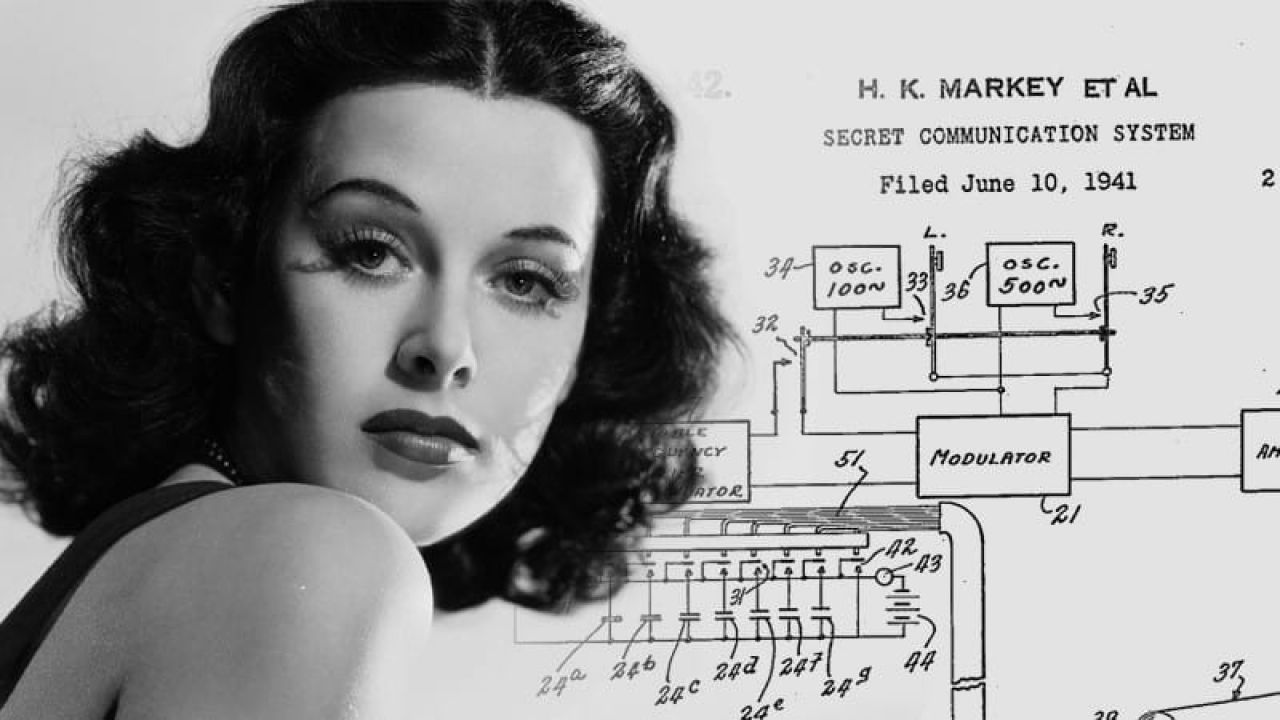 42.
H. K. MARKEY ET AL
SECRET COMMUNICATION SYSTEM
Filed June 10, 1941
2
L. R.
34 OSC. 100~ 33 36 OSC. 500~ 35
32
MODULATOR
AM
51
21
42
43
31
44
24a 24b 24c 24d 24e 24f 24g
37